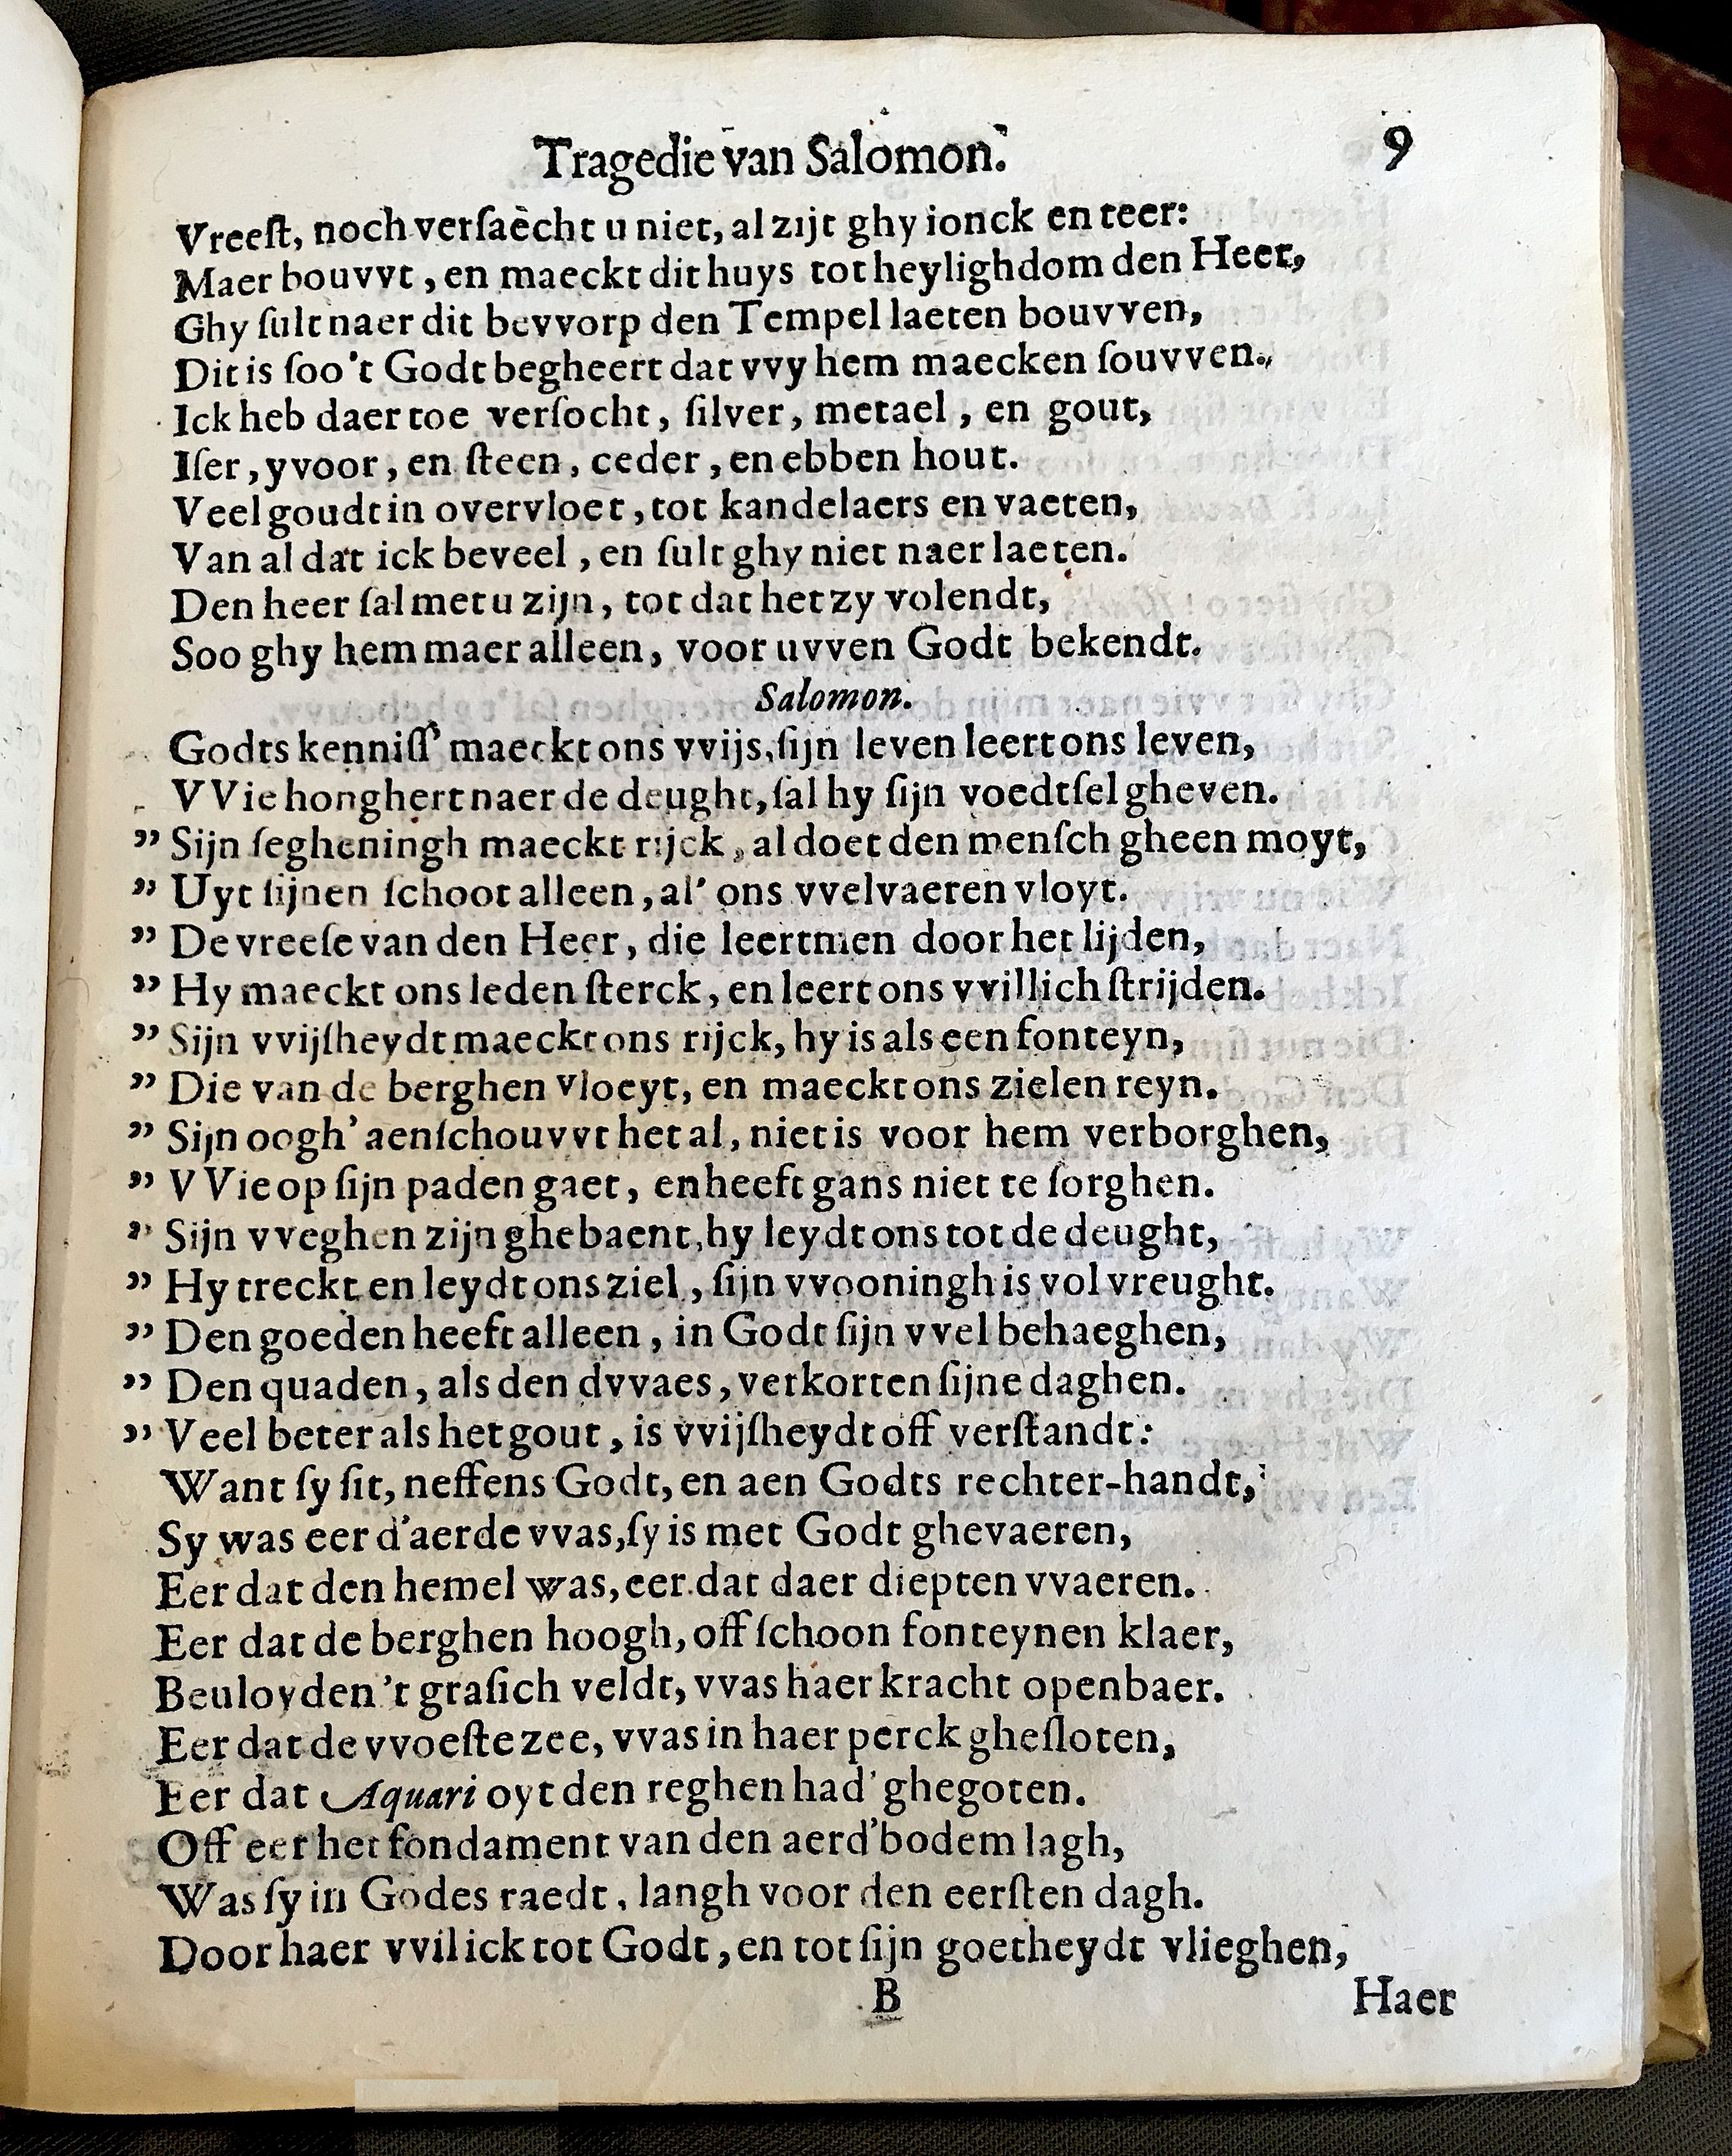 Tragedie van Salomon. 9
Vreeſt, noch verſaecht u niet, al zijt ghy ionck en teer:
Maer bouvvt, en maeckt dit huys tot heylighdom den Heer,
Ghy ſult naer dit bevvorp den Tempel laeten bouvven,
Dit is ſoo't Godt begheert dat vvy hem maecken ſouvven.
Ick heb daer toe verſocht, ſilver, metael, en gout,
Iſer, yvoor, en ſteen, ceder, en ebben hout.
Veel goudt in overvloet, tot kandelaers en vaeten,
Van al dat ick beveel, en ſult ghy niet naer laeten.
Den heer ſal met u zijn, tot dat het zy volendt,
Soo ghy hem maer alleen, voor uvven Godt bekendt.
Salomon.
Godts kenniſſ' maeckt ons vvijs, ſijn leven leert ons leven,
VVie honghert naer de deught, ſal hy ſijn voedtſel gheven.
” Sijn ſegheningh maeckt rijck, al doet den menſch gheen moyt,
” Uyt ſijnen ſchoot alleen, al' ons vvelvaeren vloyt.
” De vreeſe van den Heer, die leertmen door het lijden,
” Hy maeckt ons leden ſterck, en leert ons vvillich ſtrijden.
” Sijn vvijſheydt maeckt ons rijck, hy is als een fonteyn,
” Die van de berghen vloeyt, en maeckt ons zielen reyn.
” Sijn oogh' aenſchouvvt het al, niet is voor hem verborghen,
” VVie op ſijn paden gaet, en heeft gans niet te ſorghen.
” Sijn vveghen zijn ghebaent, hy leydt ons tot de deught,
” Hy treckt en leydt ons ziel, ſijn vvooningh is vol vreught.
” Den goeden heeft alleen, in Godt ſijn vvel behaeghen,
” Den quaden, als den dvvaes, verkorten ſijne daghen.
” Veel beter als het gout, is vvijſheydt off verſtandt:
Want ſy ſit, neffens Godt, en aen Godts rechter-handt,
Sy was eer d'aerde vvas, ſy is met Godt ghevaeren,
Eer dat den hemel was, eer dat daer diepten vvaeren.
Eer dat de berghen hoogh, off ſchoon fonteynen klaer,
Beuloyden 't graſich veldt, vvas haer kracht openbaer.
Eer dat de vvoeſte zee, vvas in haer perck gheſloten,
Eer dat Aquari oyt den reghen had' ghegoten.
Off eer het fondament van den aerd'bodem lagh,
Was ſy in Godes raedt, langh voor den eerſten dagh.
Door haer vvil ick tot Godt, en tot ſijn goetheydt vlieghen,
B Haer